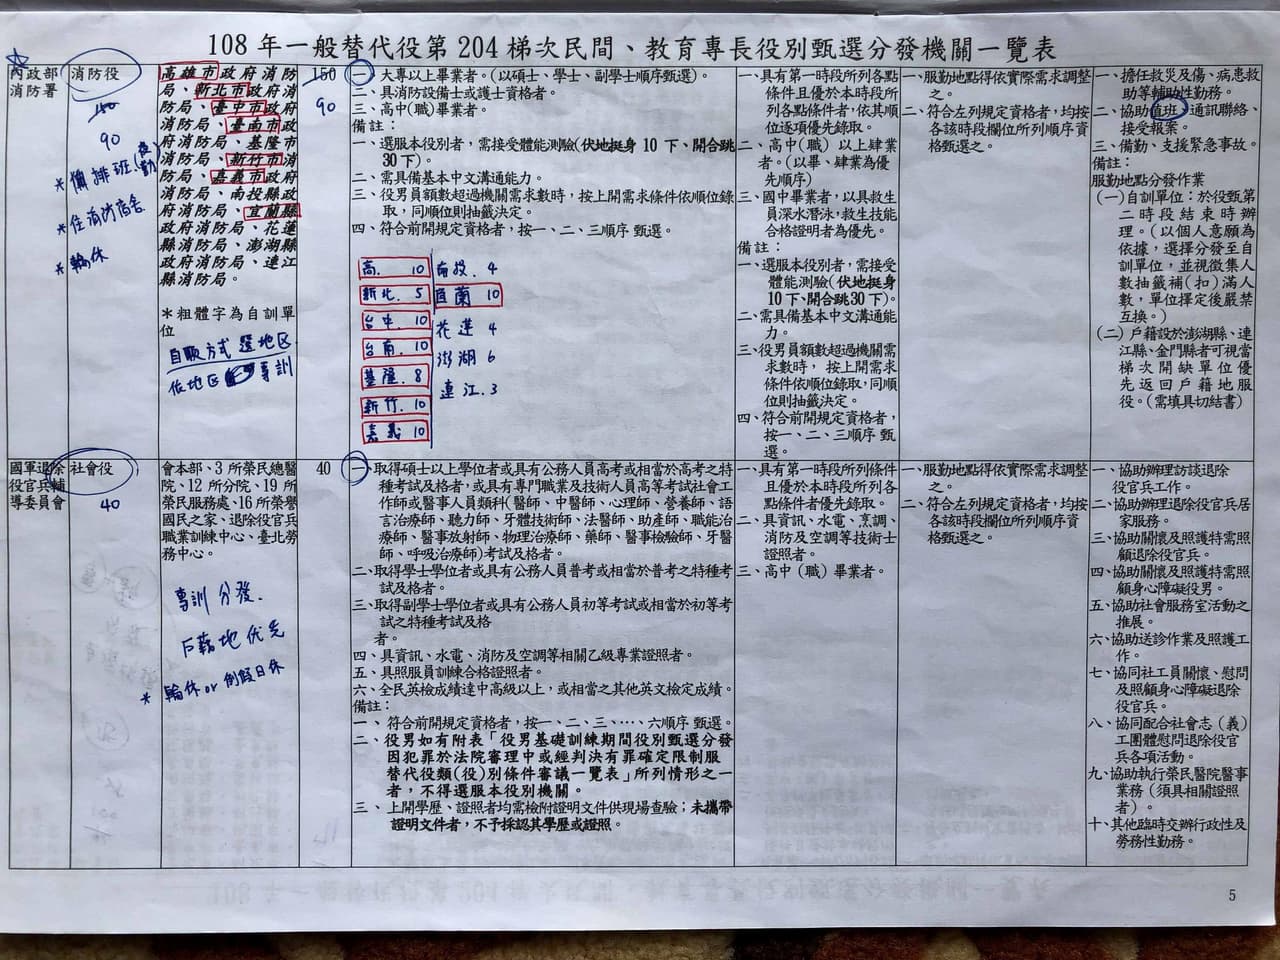 108 年一般替代役第 204 梯次民間、教育專長役別甄選分發機關一覽表
內政部
消防署
消防役
150
90
* 備排班(夜勤)
* 住消防宿舍
* 輪休
高雄市政府消防
局、新北市政府消
防局、臺中市政府
消防局、臺南市政
府消防局、基隆市
消防局、新竹市消
防局、嘉義市政府
消防局、南投縣政
府消防局、宜蘭縣
政府消防局、花蓮
縣消防局、澎湖縣
政府消防局、連江
縣消防局。
*粗體字為自訓單
位
自願方式 選地区
依地区 專訓
150
90
一、大專以上畢業者。(以碩士、學士、副學士順序甄選)。
二、具消防設備士或護士資格者。
三、高中(職)畢業者。
備註：
一、選服本役別者，需接受體能測驗(伏地挺身 10 下、開合跳
30 下)。
二、需具備基本中文溝通能力。
三、役男員額數超過機關需求數時，按上開需求條件依順位錄
取，同順位則抽籤決定。
四、符合前開規定資格者，按一、二、三順序 甄選。
高. 10
新北. 5
台中. 10
台南. 10
基隆. 8
新竹. 10
嘉義 10
南投. 4
宜蘭 10
花蓮 4
澎湖 6
連江. 3
一、具有第一時段所列各點
條件且優於本時段所
列各點條件者，依其順
位逐項優先錄取。
二、高中(職)以上肄業
者。(以畢、肄業為優
先順序)
三、國中畢業者，以具救生
員深水潛泳，救生技能
合格證明者為優先。
備註：
一、選服本役別者，需接受
體能測驗(伏地挺身
10 下、開合跳 30 下)。
二、需具備基本中文溝通能
力。
三、役男員額數超過機關需
求數時，按上開需求
條件依順位錄取，同順
位則抽籤決定。
四、符合前開規定資格者，
按一、二、三順序 甄
選。
一、服勤地點得依實際需求調整
之。
二、符合左列規定資格者，均按
各該時段欄位所列順序資
格甄選之。
一、擔任救災及傷、病患救
助等輔助性勤務。
二、協助值班、通訊聯絡、
接受報案。
三、備勤、支援緊急事故。
備註：
服勤地點分發作業
(一)自訓單位：於役甄第
二時段結束時辦
理。(以個人意願為
依據，選擇分發至自
訓單位，並視徵集人
數抽籤補(扣)滿人
數，單位擇定後嚴禁
互換。)
(二)戶籍設於澎湖縣、連
江縣、金門縣者可視當
梯次開缺單位優
先返回戶籍地服
役。(需填具切結書)
國軍退除
役官兵輔
導委員會
社會役
40
會本部、3 所榮民總醫
院、12 所分院、19 所
榮民服務處、16 所榮譽
國民之家、退除役官兵
職業訓練中心、臺北勞
務中心。
專訓分發.
戶籍地优先
* 輪休 or 例假日休
40
一、取得碩士以上學位者或具有公務人員高考或相當於高考之特
種考試及格者，或具有專門職業及技術人員高等考試社會工
作師或醫事人員類科(醫師、中醫師、心理師、營養師、語
言治療師、聽力師、牙體技術師、法醫師、助產師、職能治
療師、醫事放射師、物理治療師、藥師、醫事檢驗師、牙醫
師、呼吸治療師)考試及格者。
二、取得學士學位者或具有公務人員普考或相當於普考之特種考
試及格者。
三、取得副學士學位者或具有公務人員初等考試或相當於初等考
試之特種考試及格
者。
四、具資訊、水電、消防及空調等相關乙級專業證照者。
五、具照服員訓練合格證明者。
六、全民英檢成績達中高級以上，或相當之其他英文檢定成績。
備註：
一、 符合前開規定資格者，按一、二、三、…、六順序 甄選。
二、役男如有附表「役男基礎訓練期間役別甄選分發
因犯罪於法院審理中或經判決有罪確定限制服
替代役類(役)別條件審議一覽表」所列情形之一
者，不得選服本役別機關。
三、上開學歷、證照者均需檢附證明文件供現場查驗；未攜帶
證明文件者，不予採認其學歷或證照。
一、具有第一時段所列條件
且優於本時段所列各
點條件者優先錄取。
二、具資訊、水電、烹調、
消防及空調等技術士
證照者。
三、高中(職)畢業者。
一、服勤地點得依實際需求調整
之。
二、符合左列規定資格者，均按
各該時段欄位所列順序資
格甄選之。
一、協助辦理訪談退除
役官兵工作。
二、協助辦理退除役官兵居
家服務。
三、協助關懷及照護特需照
顧退除役官兵。
四、協助關懷及照護特需照
顧身心障礙役男。
五、協助社會服務室活動之
推展。
六、協助送診作業及照護工
作。
七、協同社工員關懷、慰問
及照顧身心障礙退除
役官兵。
八、協同配合社會志(義)
工團體慰問退除役官
兵各項活動。
九、協助執行榮民醫院醫事
業務(須具相關證照
者)。
十、其他臨時交辦行政性及
勞務性勤務。
5